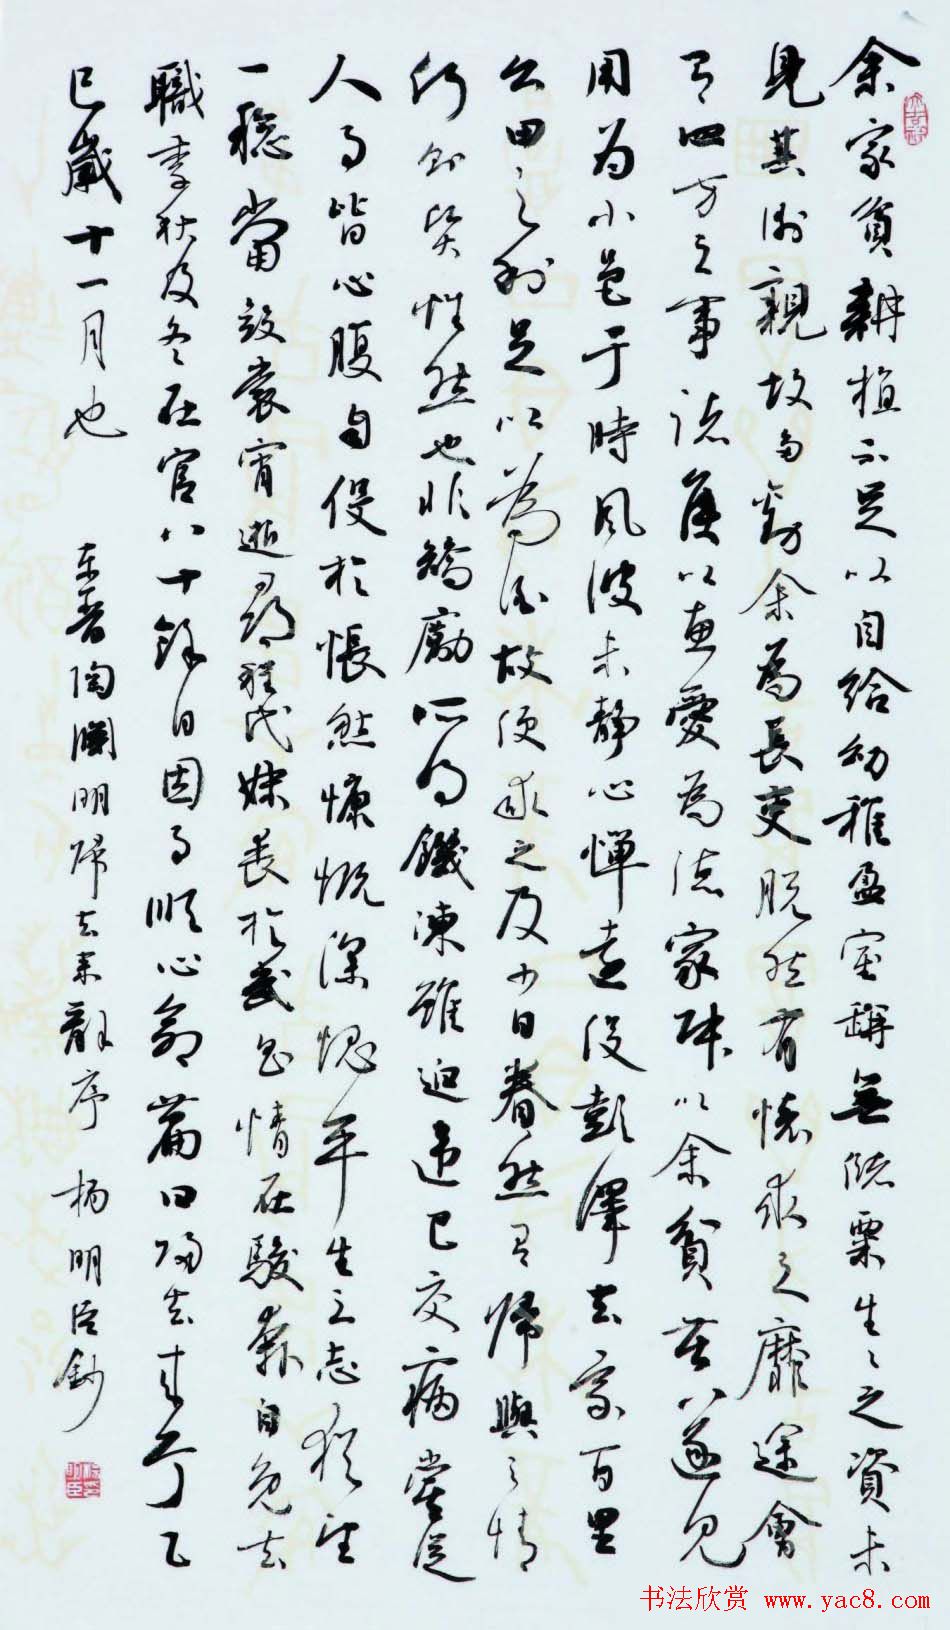 余家貧耕植不足以自給幼稚盈室缾無儲粟生〻之資未
見其術親故多勸余為長吏脫然有懷求之靡途會
有四方之事諸侯以惠愛為德家叔以余貧苦遂見
用為小邑于時風波未靜心憚遠役彭澤去家百里
公田之利足以為酒故便求之及少日眷然有歸與之情
何則質性然也非矯厲所得饑凍雖迫違己交病嘗從
人事皆心腹自役於悵然慷慨深愧平生之志猶望
一稔當斂裳宵逝尋程氏妹喪於武昌情在駿奔自免去
職季秋及冬在官八十餘日因事順心命篇曰歸去來兮乙
巳歲十一月也
東晉陶淵明歸去來辭序 楊明臣鈔
书法欣赏 www.yac8.com